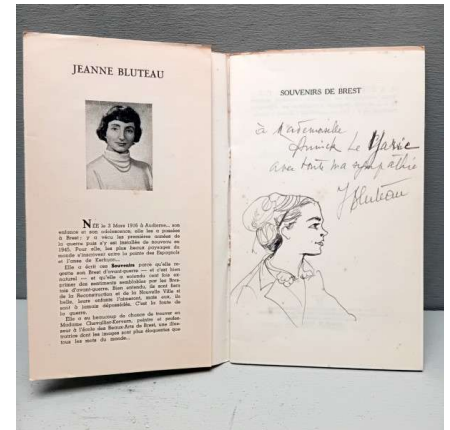 JEANNE BLUTEAU
NÉE le 3 Mars 1916 à Audierne... son
enfance et son adolescence, elle les a passées
à Brest ; y a vécu les premières années de
la guerre puis s'y est installée de nouveau en
1945. Pour elle, les plus beaux paysages du
monde s'inscrivent entre la pointe des Espagnols
et l'anse de
Elle a écrit ces Souvenirs parce qu'elle re-
grette son Brest d'avant-guerre — et c'est bien
naturel — et qu'elle a entendu cent fois ex-
primer des sentiments semblables par les Bres-
tois d'avant-guerre. Bien entendu, ils sont fiers
de la Reconstruction et de la Nouvelle Ville si
belle, leurs enfants l'aimeront, mais eux, ils
sont à jamais dépossédés. C'est la faute de
la guerre.
Elle a eu beaucoup de chance de trouver en
Madame Chevallier-Kervern, peintre et profes-
seur à l'école des Beaux-Arts de Brest, une illus-
tratrice dont les images sont plus éloquentes que
tous les mots du monde...
SOUVENIRS DE BREST
à Mademoiselle
Annick Le
avec toute ma sympathie
J Bluteau